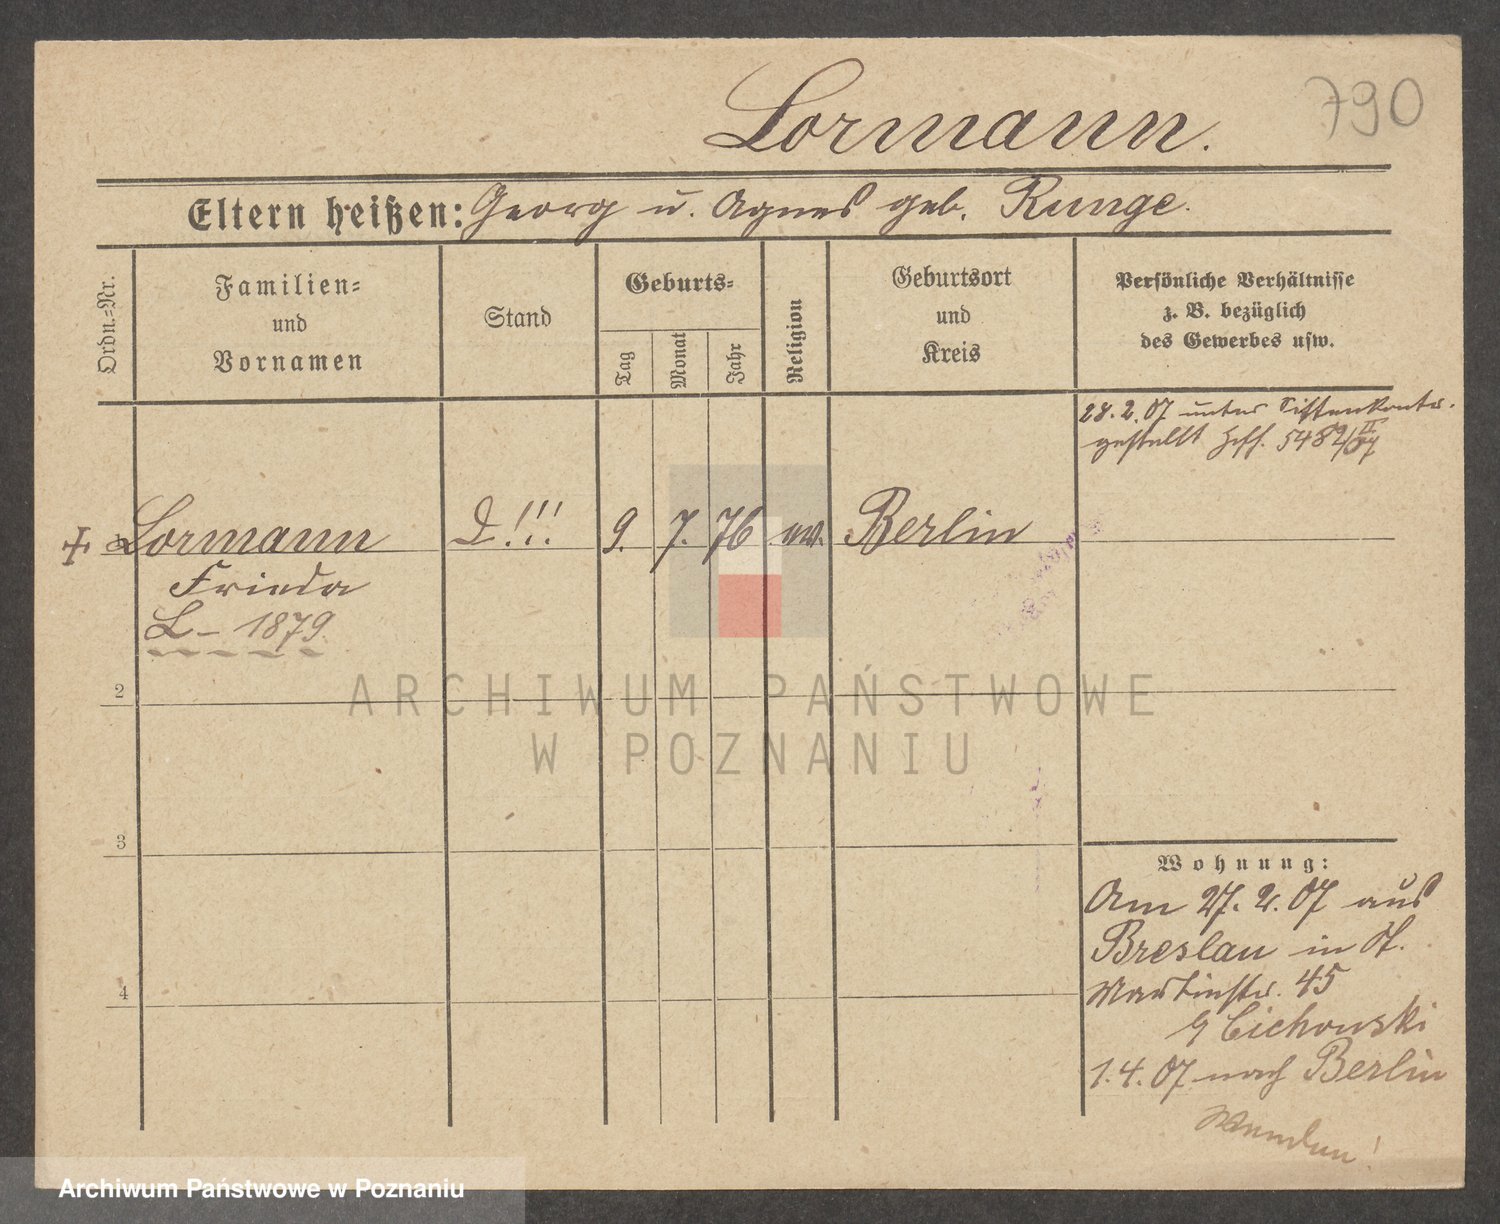 790
Lormann.
Eltern heißen: Georg u. Agnes geb. Runge.
Ordn.=Nr.
Familien=
und
Vornamen
Stand
Geburts=
Tag
Monat
Jahr
Religion
Geburtsort
und
Kreis
Persönliche Verhältnisse
z. B. bezüglich
des Gewerbes usw.
28.2.07 unter Sittenkontr.
gestellt 5482
Lormann
Frieda
L – 1879
!!!
9. 7. 76
ev.
Berlin
2
3
4
Wohnung:
Am 27.2.07 aus
Breslau in St.
Martinstr. 45
Cichowski
1.4.07 nach Berlin
Wenden!
ARCHIWUM PAŃSTWOWE
W POZNANIU
Archiwum Państwowe w Poznaniu